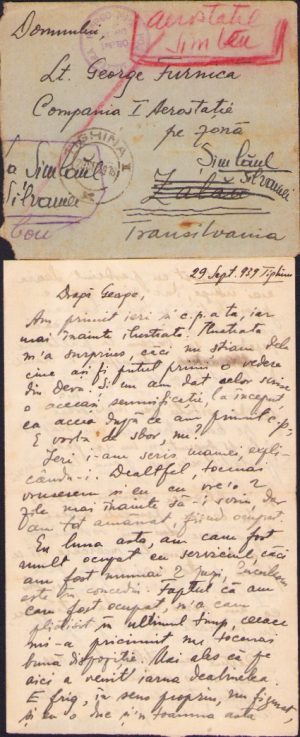 Aerostatul
Simleu
Domnului,
Lt. George Furnica
Compania I Aerostatie
pe zonă
Simlăul
Silvaniei
Zalău
Transilvania
TIGHINA
a Simlăul
Silvaniei
29 Sept. 939 Tighina
Dragă George,
Am primit ieri și c.p. a ta, iar
mai înainte ilustrata. Ilustrata
m'a surprins, căci nu știam dela
cine aș fi putut primi o vedere
din Deva. Și eu am dat celor scrise
o aceeași semnificație, la început,
ca aceia după ce am primit c.p.
E vorba de sbor, nu?
Ieri i-am scris mamei, expli-
cându-i. Dealtfel, tocmai
vroisem și eu cu vre-o 2
zile mai înainte să-i scriu, dar
am tot amânat, fiind ocupat.
En luna asta, am cam fost
mult ocupat cu serviciul, căci
am fost numai 2 juzi,
este în concediu. Faptul că am
cam fost ocupat, m'a cam
plictisit în ultimul timp, ceeace
mi-a pricinuit nu tocmai
buna dispoziție. Mai ales că pe
aici a venit iarna deabinelea.
E frig, în sens propriu, nu figurat,
și eu o duc și'n toamna asta